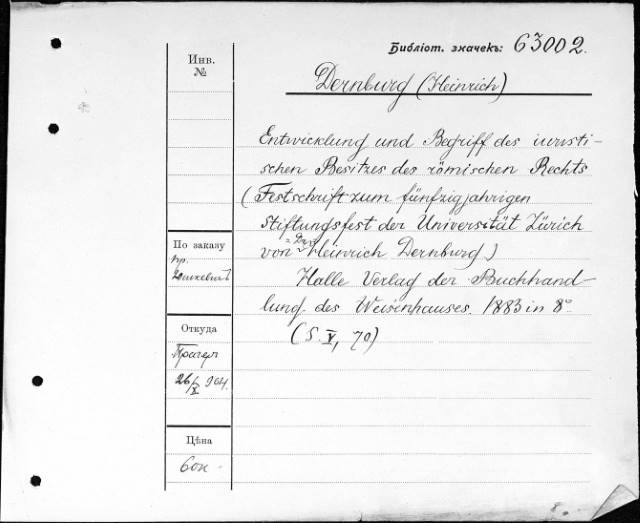 Библіот. значекъ: 63002.
Инв.
№
Dernburg (Heinrich)
Entwicklung und Begriff des iuristi-
schen Besitzes des römischen Rechts
(Festschrift zum fünfzigjahrigen
Stiftungsfest der Universität Zürich
von Heinrich Dernburg)
Halle Verlag der Buchhand-
lung des Weisenhauses. 1883 in 8°
(S. V, 70)
По заказу
пр.
Откуда
Прагеръ
26/X 904.
Цѣна
60к